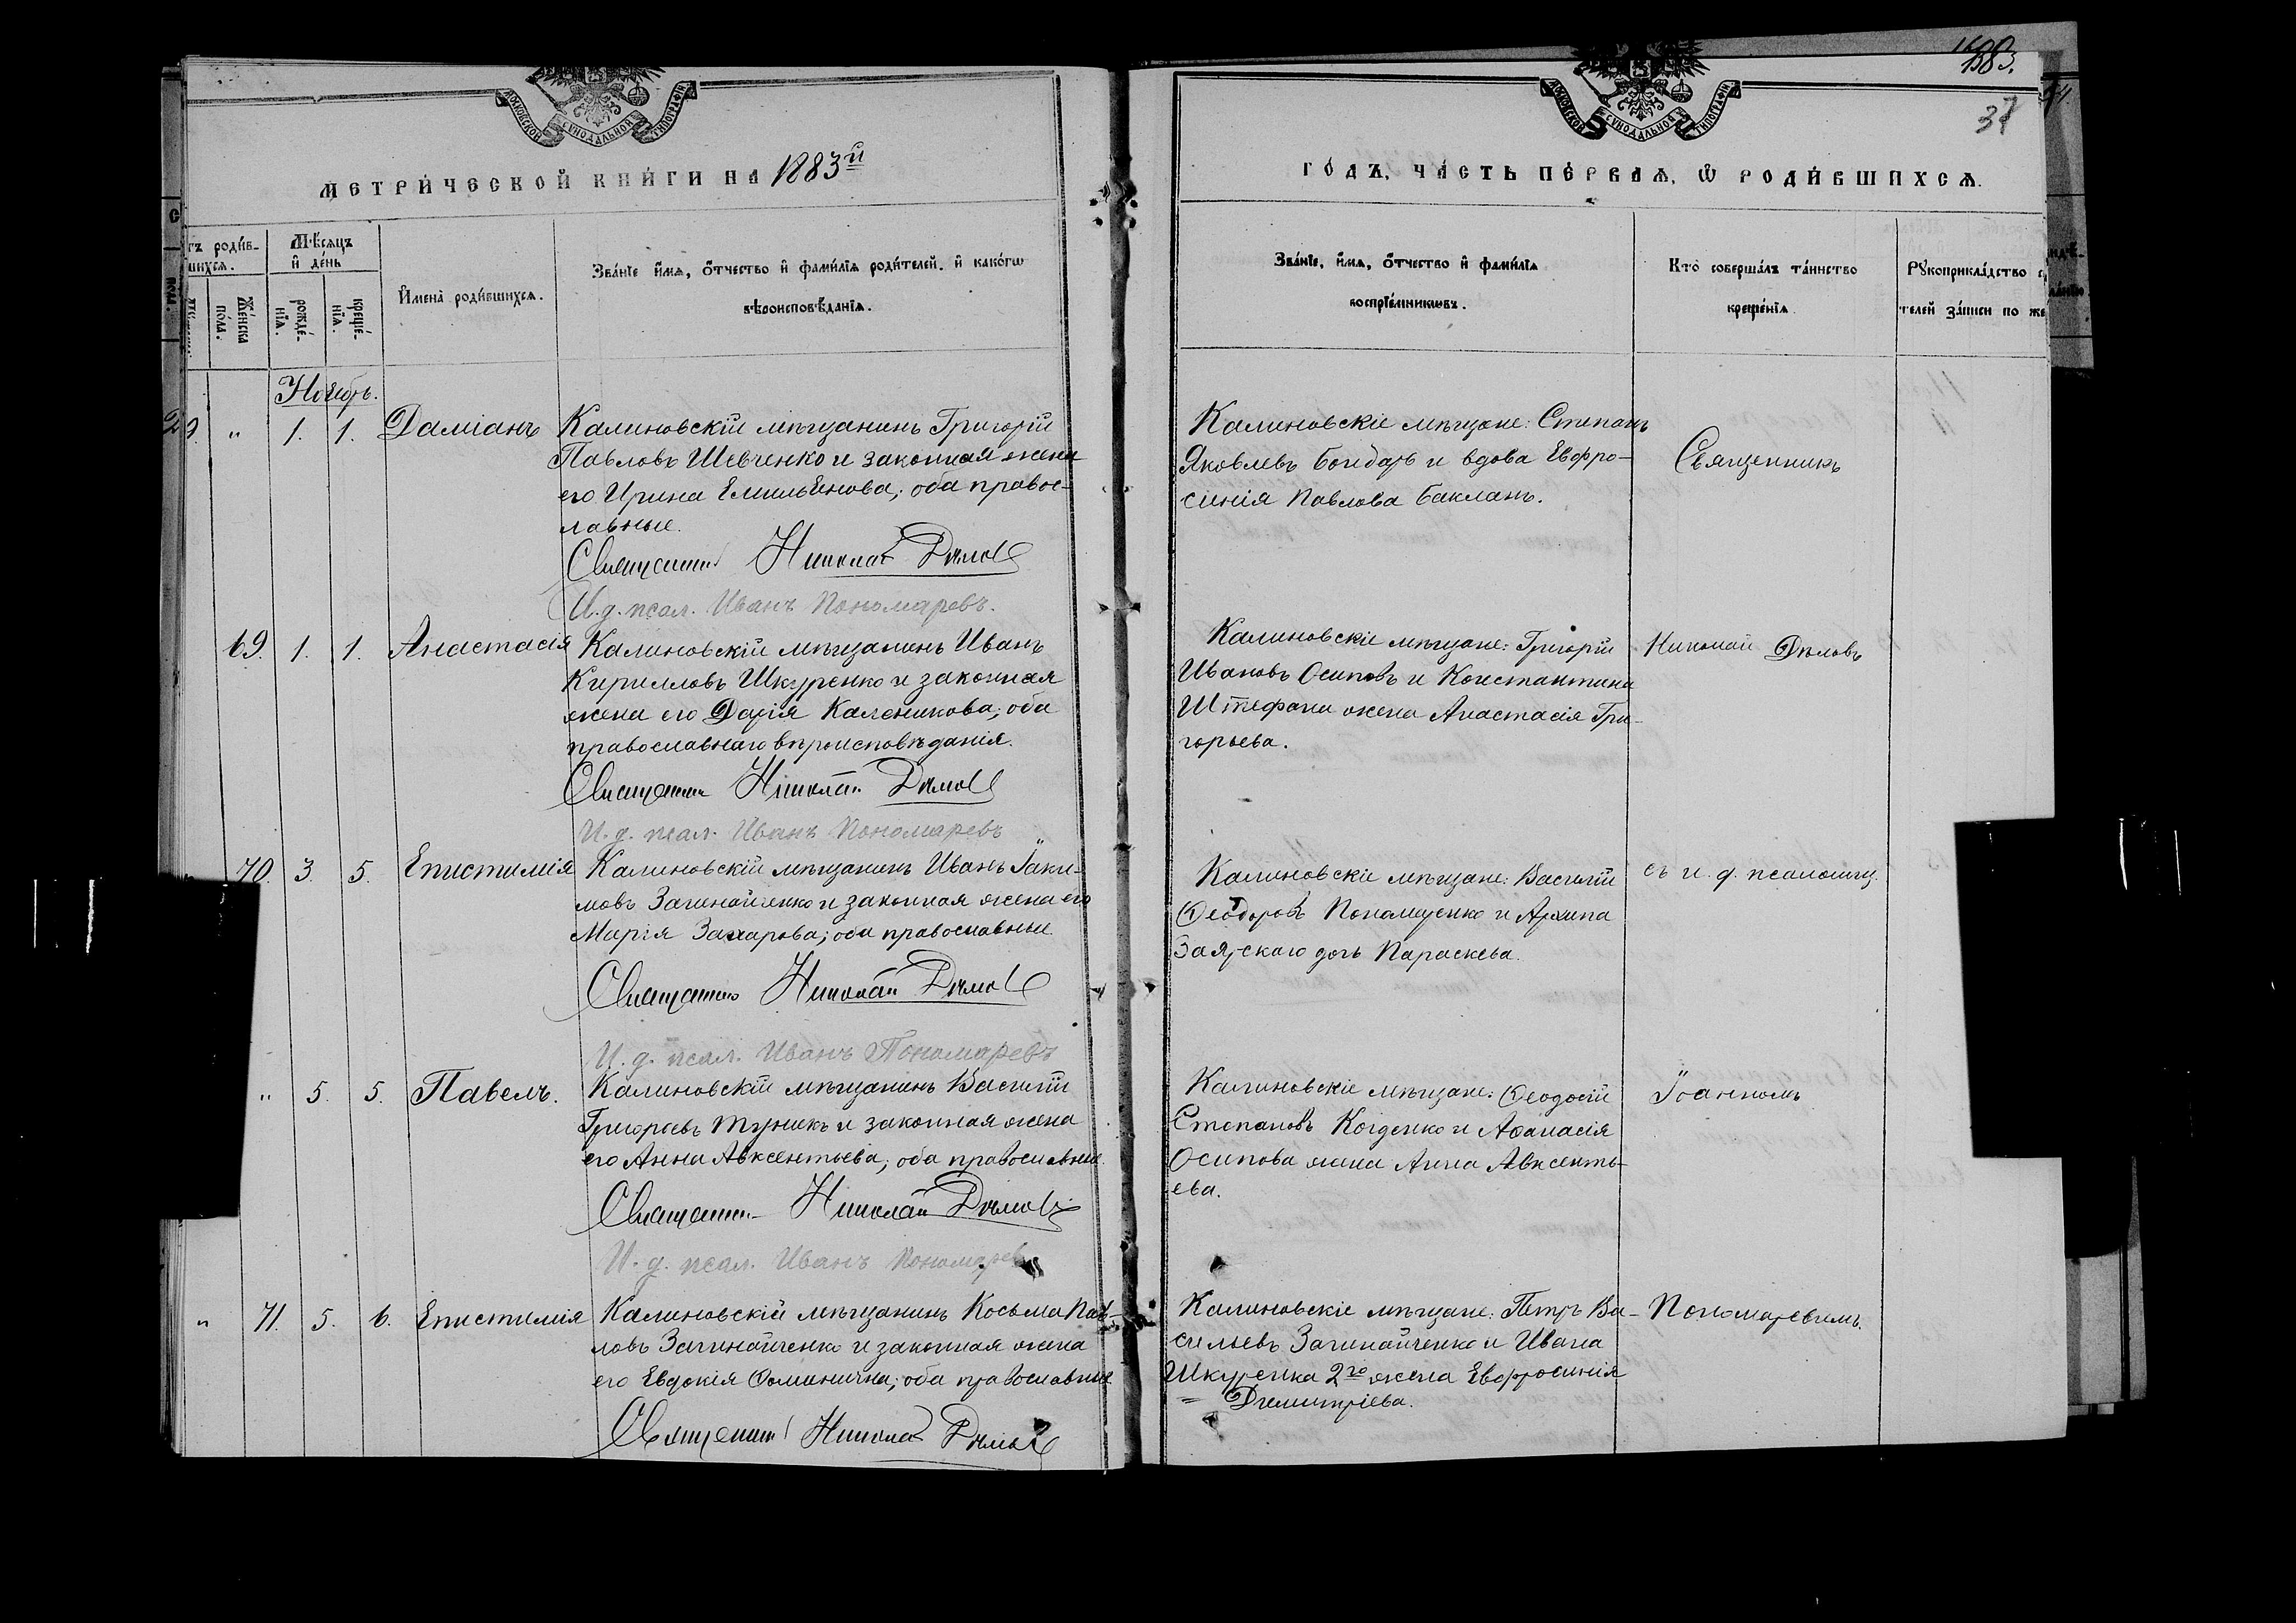 1883.
37
МОСКОВСКОЙ СУНОДАЛЬНОЙ ТИПОГРАФІИ
МОСКОВСКОЙ СУНОДАЛЬНОЙ ТИПОГРАФІИ
МЕТРИ́ЧЕСКОЙ КНИ́ГИ НА 1883й
ГО́ДЪ, ЧА́СТЬ ПЕ́РВАѦ, Ѡ҆ РОДИ́ВШИХСѦ.
роди́в-
шихсѧ.
Же́нска
по́ла.
Мѣ́сѧцъ
и҆ де́нь
рожде́-
нїѧ.
креще́-
нїѧ.
И҆мена̀ роди́вшихсѧ.
Зва́нїе и҆́мѧ, ѻ҆́тчество и҆ фами́лїѧ роди́телей. и҆ како́гѡ
вѣроисповѣ́данїѧ.
Зва́нїе, и҆́мѧ, ѻ҆́тчество и҆ фами́лїѧ
воспрїе́мникѡвъ.
Кто̀ соверша́лъ та́инство
креще́нїѧ
Рꙋкоприкла́дство
телей за́писи по же
Ноябрь.
„ 1. 1. Даміанъ
Калиновскій мѣщанинъ Григорій
Павловъ Шевченко и законная жена
его Ирина Емильенова; оба правос-
лавные.
Священникъ Николай Дѣловъ
И.д. псал. Иванъ Пономаревъ.
Калиновскіе мѣщане: Степанъ
Яковлевъ Бондарь и вдова Евфро-
синія Павлова Бакланъ.
Священникъ
69. 1. 1. Анастасія
Калиновскій мѣщанинъ Иванъ
Кирилловъ Шкуренко и законная
жена его Дарія Каленикова; оба
православнаго вѣроисповѣданія.
Священникъ Николай Дѣловъ
И.д. псал. Иванъ Пономаревъ
Калиновскіе мѣщане: Григорій
Ивановъ Осиповъ и Константина
Штефана жена Анастасія Гри-
горьева.
Николай Дѣловъ
70. 3. 5. Епистимія
Калиновскій мѣщанинъ Иванъ Іаки-
мовъ Загинайченко и законная жена его
Марія Захарова; оба православные
Священникъ Николай Дѣловъ
И.д. псал. Иванъ Пономаревъ
Калиновскіе мѣщане: Василій
Ѳеодоровъ Пономаренко и Архипа
Заярскаго дочь Параскева.
съ и. д. псаломщ.
„ 5. 5. Павелъ.
Калиновскій мѣщанинъ Василій
Григорьевъ Туникъ и законная жена
его Анна Авксентьева; оба православные.
Священникъ Николай Дѣловъ
И.д. псал. Иванъ Пономарев
Калиновскіе мѣщане: Ѳеодосій
Степановъ и Аѳанасія
Осипова жена Анна Авксенть-
ева.
Іоанномъ
„ 71. 5. 6. Епистимія
Калиновскій мѣщанинъ Косьма Пав-
ловъ Загинайченко и законная жена
его Евдокія Ѳоминична; оба православные
Священникъ Николай Дѣловъ
Калиновскіе мѣщане: Петръ Ва-
сильевъ Загинайченко и Ивана
Шкуренка 2го жена Евфросинія
= Димитріева.
Пономаревымъ.